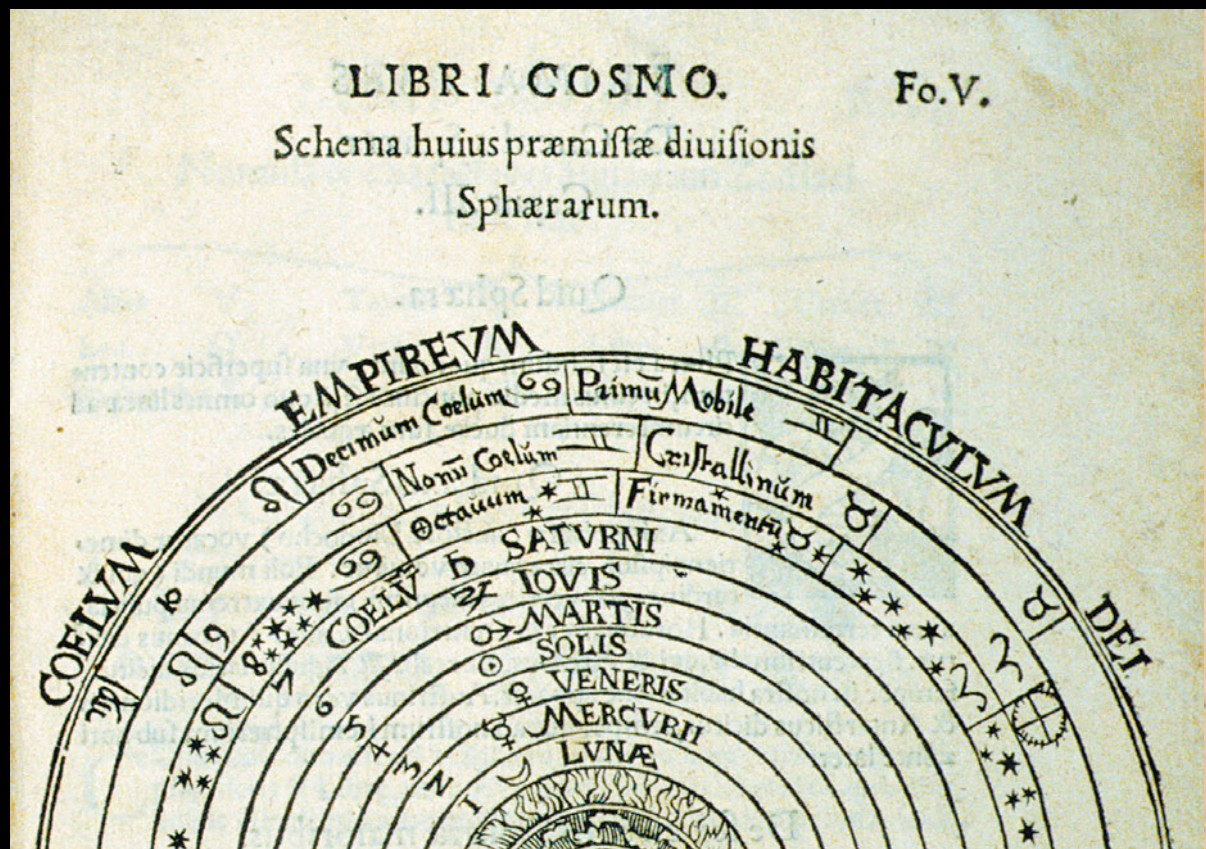 LIBRI COSMO. Fo.V.
Schema huius præmiſſæ diuiſionis
Sphærarum.
COELVM EMPIREVM HABITACVLVM DEI
Decimũm Coelũm Primũ Mobile
Nonũ Coelũm Criſtallinũm
Octauum Firmamentũ
COELV SATVRNI
IOVIS
MARTIS
SOLIS
VENERIS
MERCVRII
LVNÆ
10
9
8
7
6
5
4
3
2
1